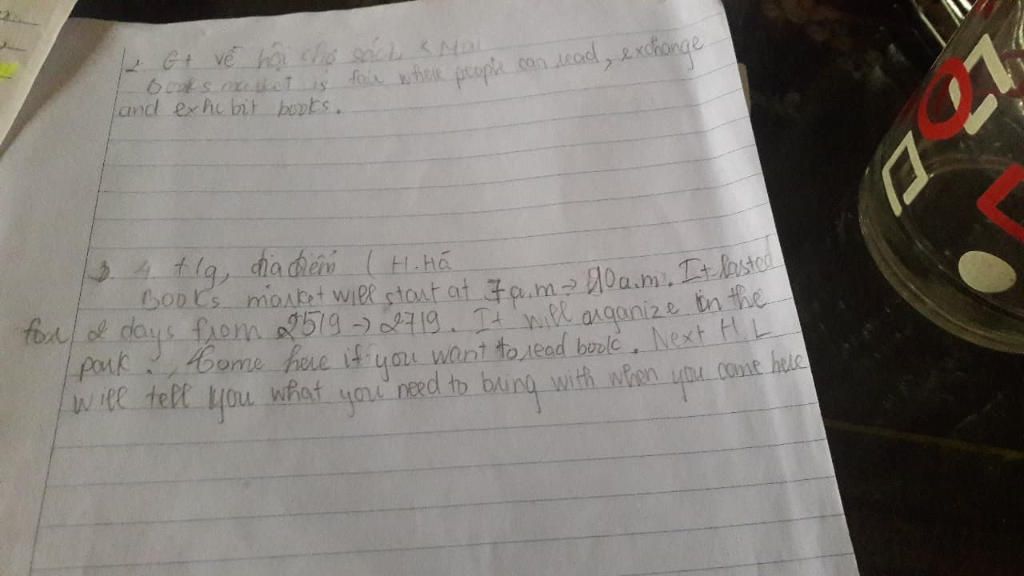 2. Gt về hội chợ sách < Mai
Books market is fair where people can read, exchange
and exhibit books.
3 4 t/g, địa điểm ( H.Hà
Books market will start at 7 a.m → 10 a.m. It lasted
for 2 days from 25/9 → 27/9. It will organize in the
park. Come here if you want to read book. Next H L
will tell you what you need to bring with when you come here